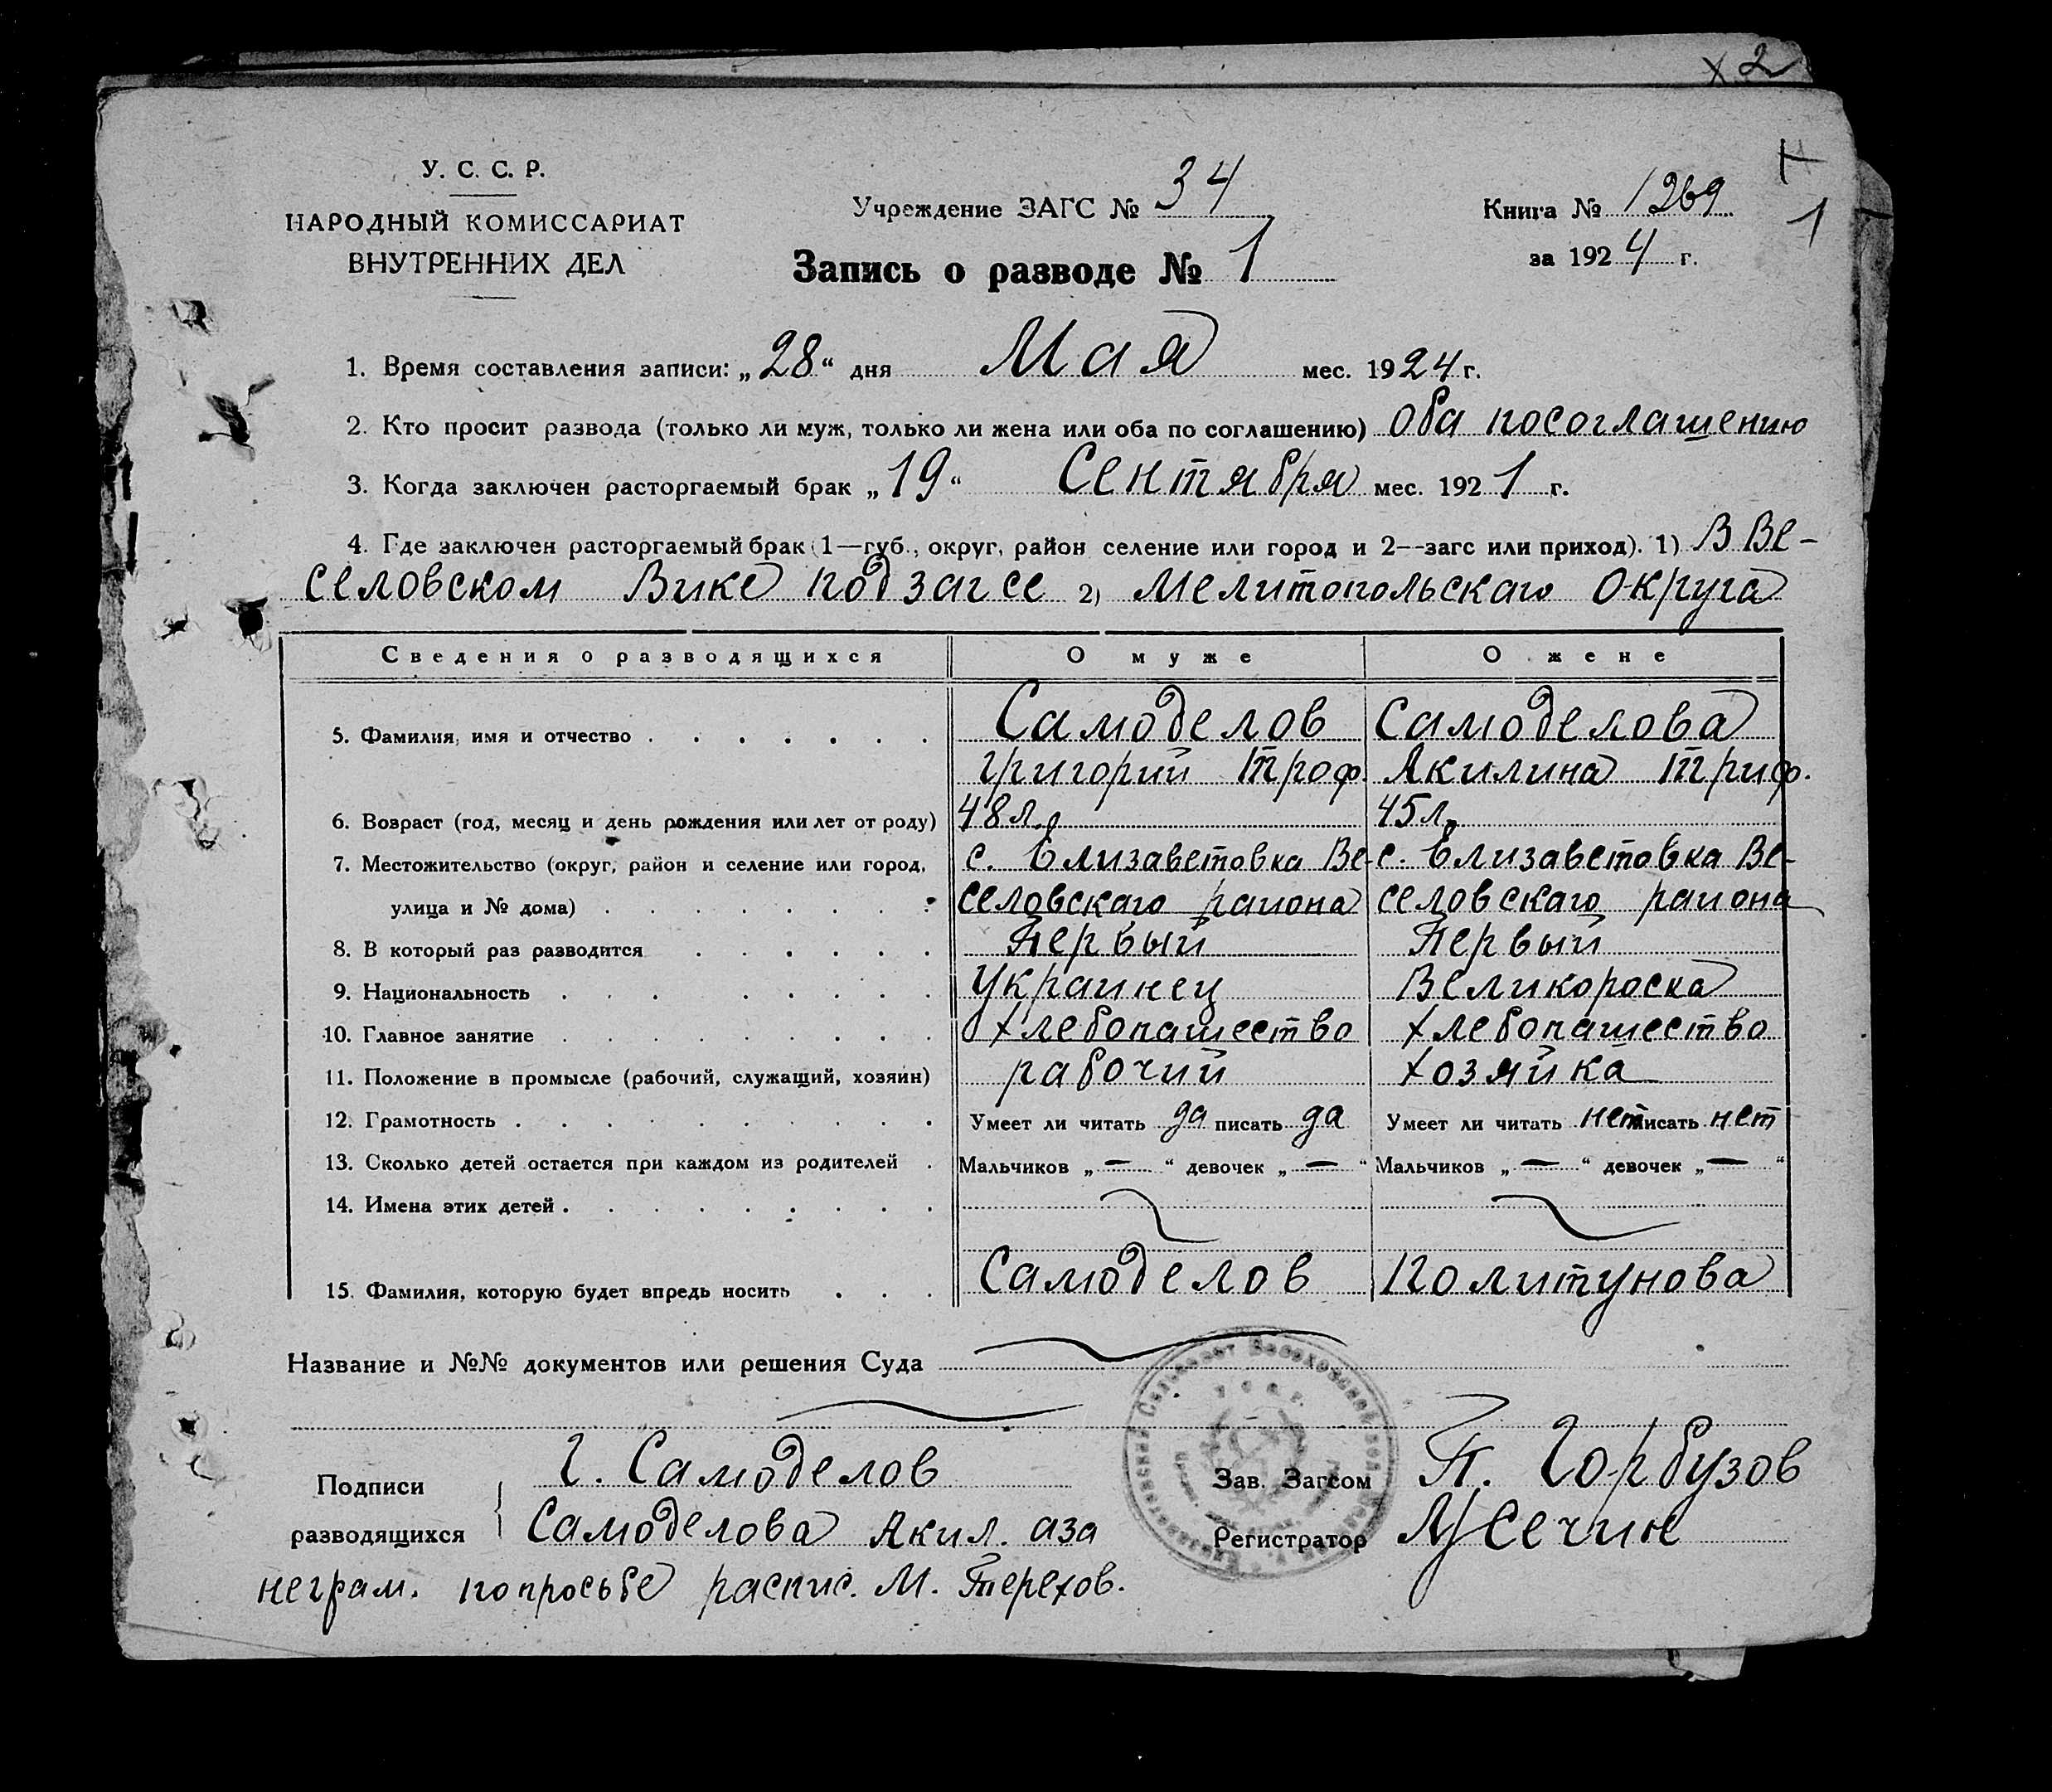 х 2
У. С. С. Р.
НАРОДНЫЙ КОМИССАРИАТ
ВНУТРЕННИХ ДЕЛ
Учреждение ЗАГС № 34
Запись о разводе № 1
Книга № 1269
за 1924 г.
1
1. Время составления записи: „28“ дня Мая мес. 1924 г.
2. Кто просит развода (только ли муж, только ли жена или оба по соглашению) оба посоглашению
3. Когда заключен расторгаемый брак „19“ Сентября мес. 1921 г.
4. Где заключен расторгаемый брак (1—губ., округ, район, селение или город и 2—загс или приход). 1) В Ве-
селовском Вике подзагсе 2) Мелитопольскаго Округа
Сведения о разводящихся О муже О жене
5. Фамилия, имя и отчество Самоделов Самоделова
Григорий Троф. Акилина Триф.
6. Возраст (год, месяц и день рождения или лет от роду) 48 л. 45 л.
7. Местожительство (округ, район и селение или город, с. Елизаветовка Ве- с. Елизаветовка Ве-
улица и № дома) селовскаго района селовскаго района
8. В который раз разводится Первый Первый
9. Национальность Украинец Великороска
10. Главное занятие Хлебопашество Хлебопашество
11. Положение в промысле (рабочий, служащий, хозяин) рабочий хозяйка
12. Грамотность Умеет ли читать да писать да Умеет ли читать нет писать нет
13. Сколько детей остается при каждом из родителей Мальчиков „—“ девочек „—“ Мальчиков „—“ девочек „—“
14. Имена этих детей
15. Фамилия, которую будет впредь носить Самоделов Политунова
Название и №№ документов или решения Суда
Подписи Г. Самоделов Зав. Загсом П. Горбузов
разводящихся Самоделова Акил. аза Регистратор
неграм. попросьбе распис. М. Терехов.